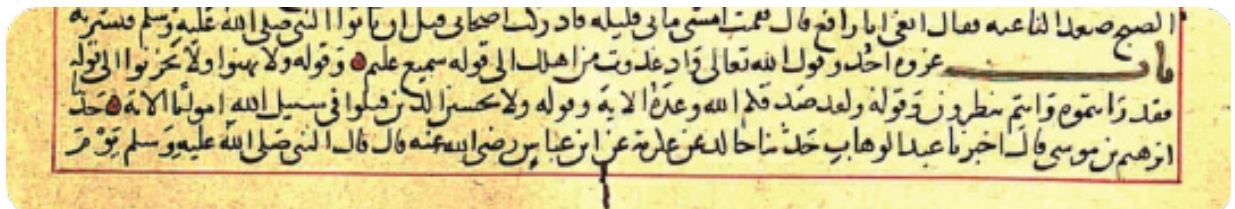 الصبح صعد الناعيه فقال انعى ابا رافع قال فقمت امشي ما بي قلبه فادركت اصحابي قبل ان ياتوا النبي صلى الله عليه وسلم فبشرته
باب غزوة احد وقول الله تعالى واذ غدوت من اهلك الى قوله سميع عليم وقوله ولا تهنوا ولا تحزنوا الى قوله
فقد رايتموه وانتم تنظرون وقوله ولقد صدقكم الله وعده الاية وقوله ولا تحسبن الذين قتلوا في سبيل الله امواتا الاية حدثنا
ابرهيم بن موسى قال اخبرنا عبد الوهاب حدثنا خالد عن عكرمة عن ابن عباس رضي الله عنه قال قال النبي صلى الله عليه وسلم يوم